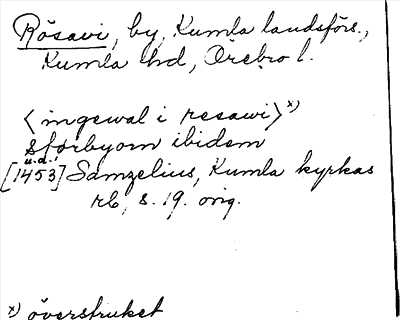 Rösavi, by, Kumla landsförs.,
Kumla hd, Örebro l.
<ingewal i resawi> x)
sförbyom ibidem
u.d.
[1453] Samzelius, Kumla kyrkas
rb, s. 19. orig.
x) överstruket